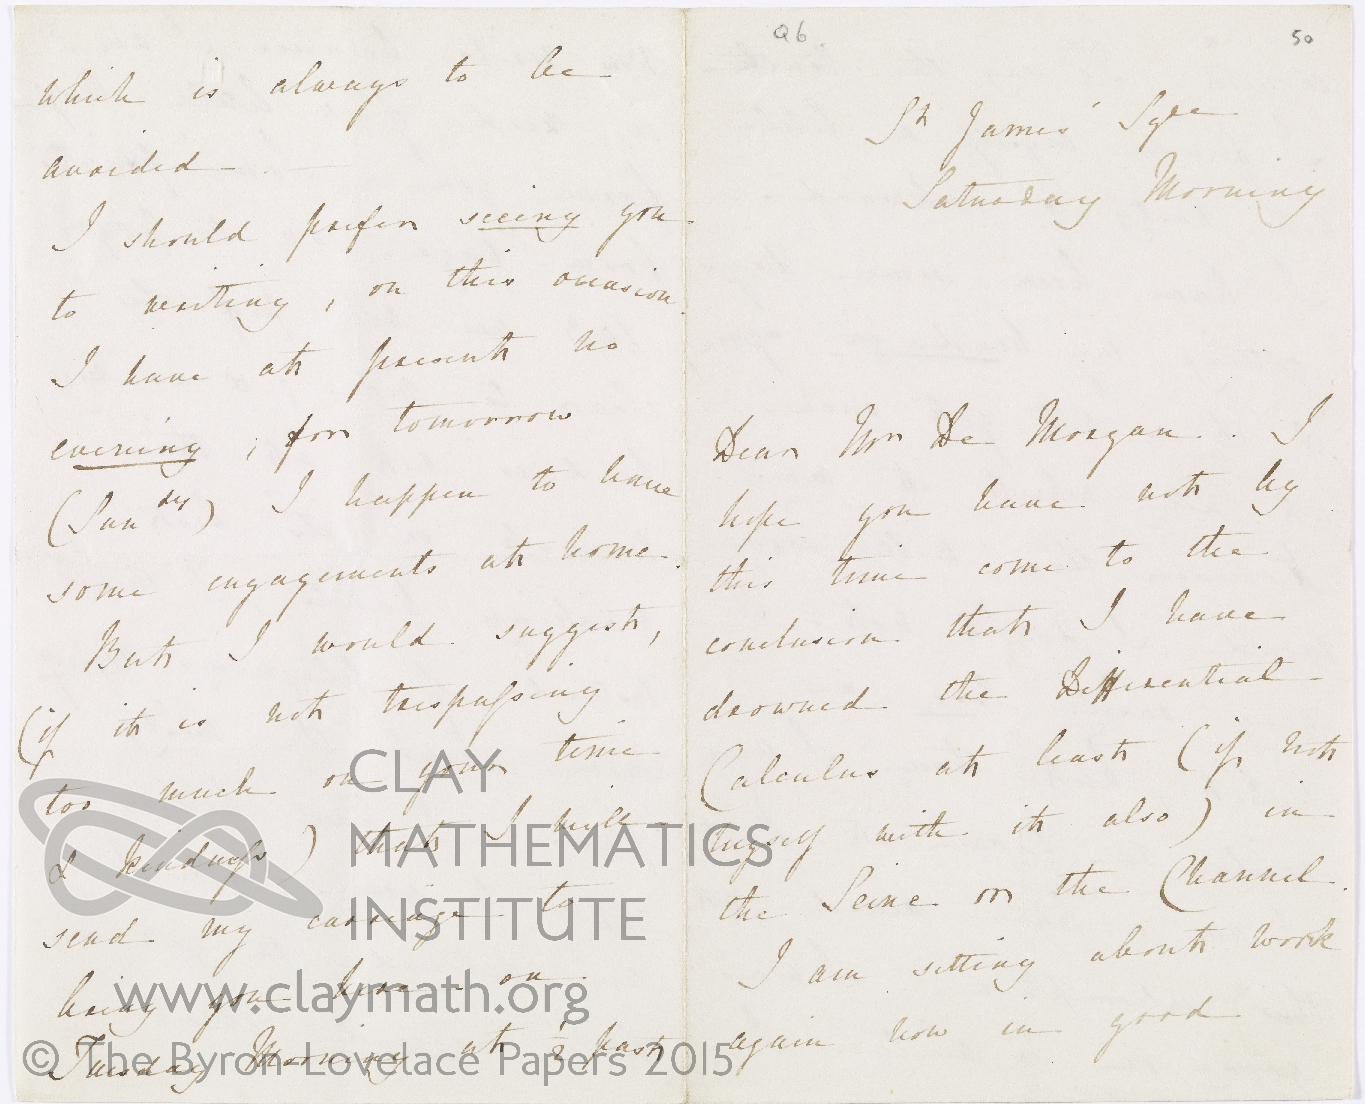 which is always to be
avoided —
I should prefer seeing you
to writing, on this occasion.
I have at present no
evening, for tomorrow
(Sun^dy) I happen to have
some engagements at home.
But I would suggest,
(if it is not trespassing
too much on your time
& kindness) that I will
send my carriage to
bring you here on
Tuesday Morning at ½ past
Q6
50
St James' Sqre
Saturday Morning
Dear Mr De Morgan. I
hope you have not by
this time come to the
conclusion that I have
drowned the Differential
Calculus at least (if not
myself with it also) in
the Seine or the Channel.
I am setting about work
again now in good
CLAY
MATHEMATICS
INSTITUTE
www.claymath.org
© The Byron-Lovelace Papers 2015